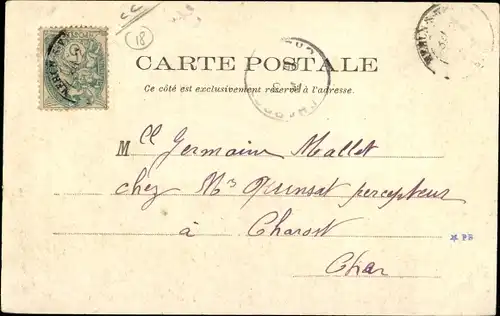 18
CARTE POSTALE
Ce côté est exclusivement réservé à l'adresse.
Mll Germaine Mallet
chez Mr Quinsat percepteur
à Charost
Cher